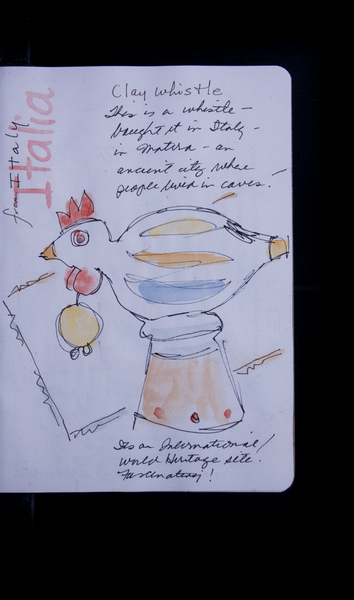 from Italy
Italia
Clay whistle
This is a whistle –
bought it in Italy –
in Matera – an
ancient city where
people lived in caves.
Its an International/
world Heritage site.
Fascinating!